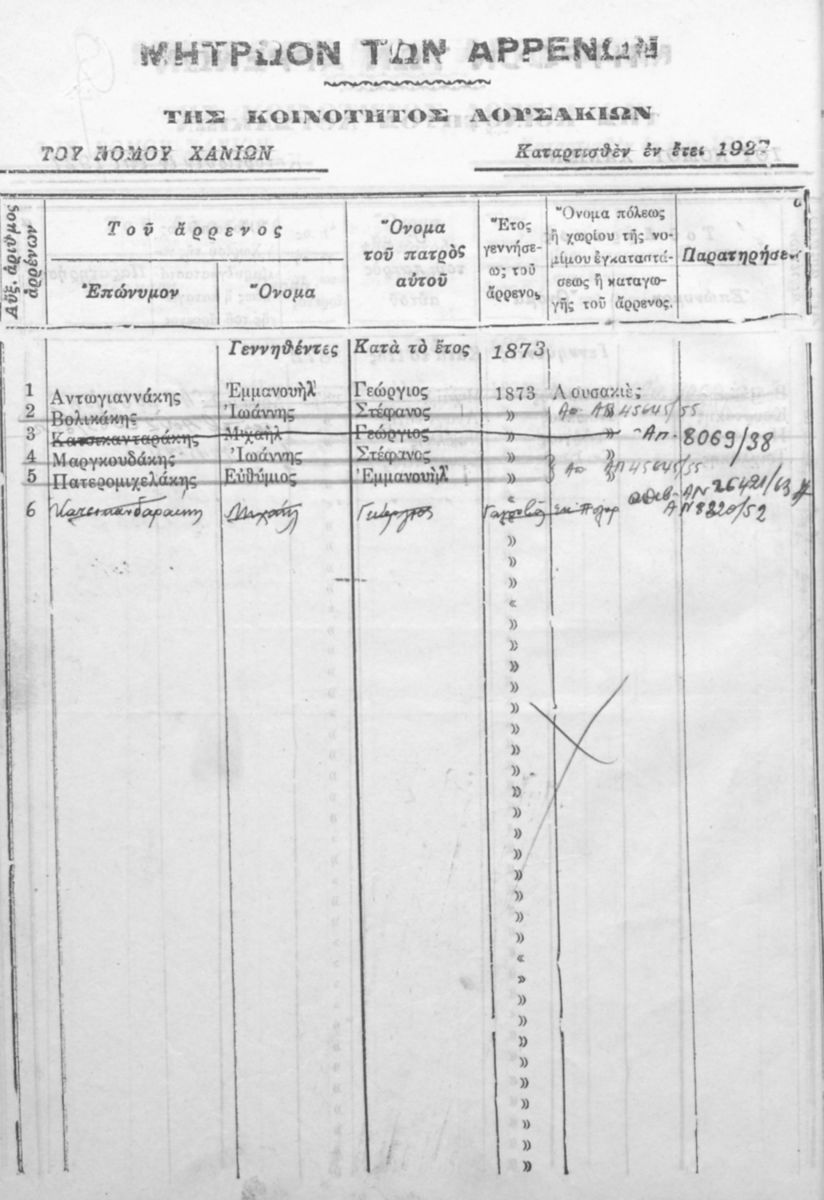 ΜΗΤΡΩΟΝ ΤΩΝ ΑΡΡΕΝΩΝ
ΤΗΣ ΚΟΙΝΟΤΗΤΟΣ ΛΟΥΣΑΚΙΩΝ
ΤΟΥ ΝΟΜΟΥ ΧΑΝΙΩΝ Καταρτισθὲν ἐν ἔτει 1927
Αὔξ. ἀριθμος ἀρρένων
Τοῦ ἄρρενος
Ἐπώνυμον Ὄνομα
Ὄνομα
τοῦ πατρὸς
αὐτοῦ
Ἔτος
γεννήσε-
ως τοῦ
ἄρρενος
Ὄνομα πόλεως
ἢ χωρίου τῆς νο-
μίμου ἐγκαταστά-
σεως ἢ καταγω-
γῆς τοῦ ἄρρενος.
Παρατηρήσε
Γεννηθέντες Κατὰ τὸ ἔτος 1873
1 Αντωγιαννάκης Ἐμμανουὴλ Γεώργιος 1873 Λουσακιὲς
2 Βολικάκης Ἰωάννης Στέφανος » ΑΠ 45645/55
3 Κατσικανταράκης Μιχαὴλ Γεώργιος » » Απ. 8069/38
4 Μαργκουδάκης Ἰωάννης Στέφανος » »
5 Πατερομιχελάκης Εὐθύμιος Ἐμμανουὴλ » ΑΠ 45645/55
ΑΝ 26421/63
6 Μιχαὴλ Γεώργιος ΑΝ 8220/52
»
»
»
«
»
»
»
»
»
»
»
»
»
»
»
»
»
»
»
»
«
»
»
»
»
»
»
»
»
»
»